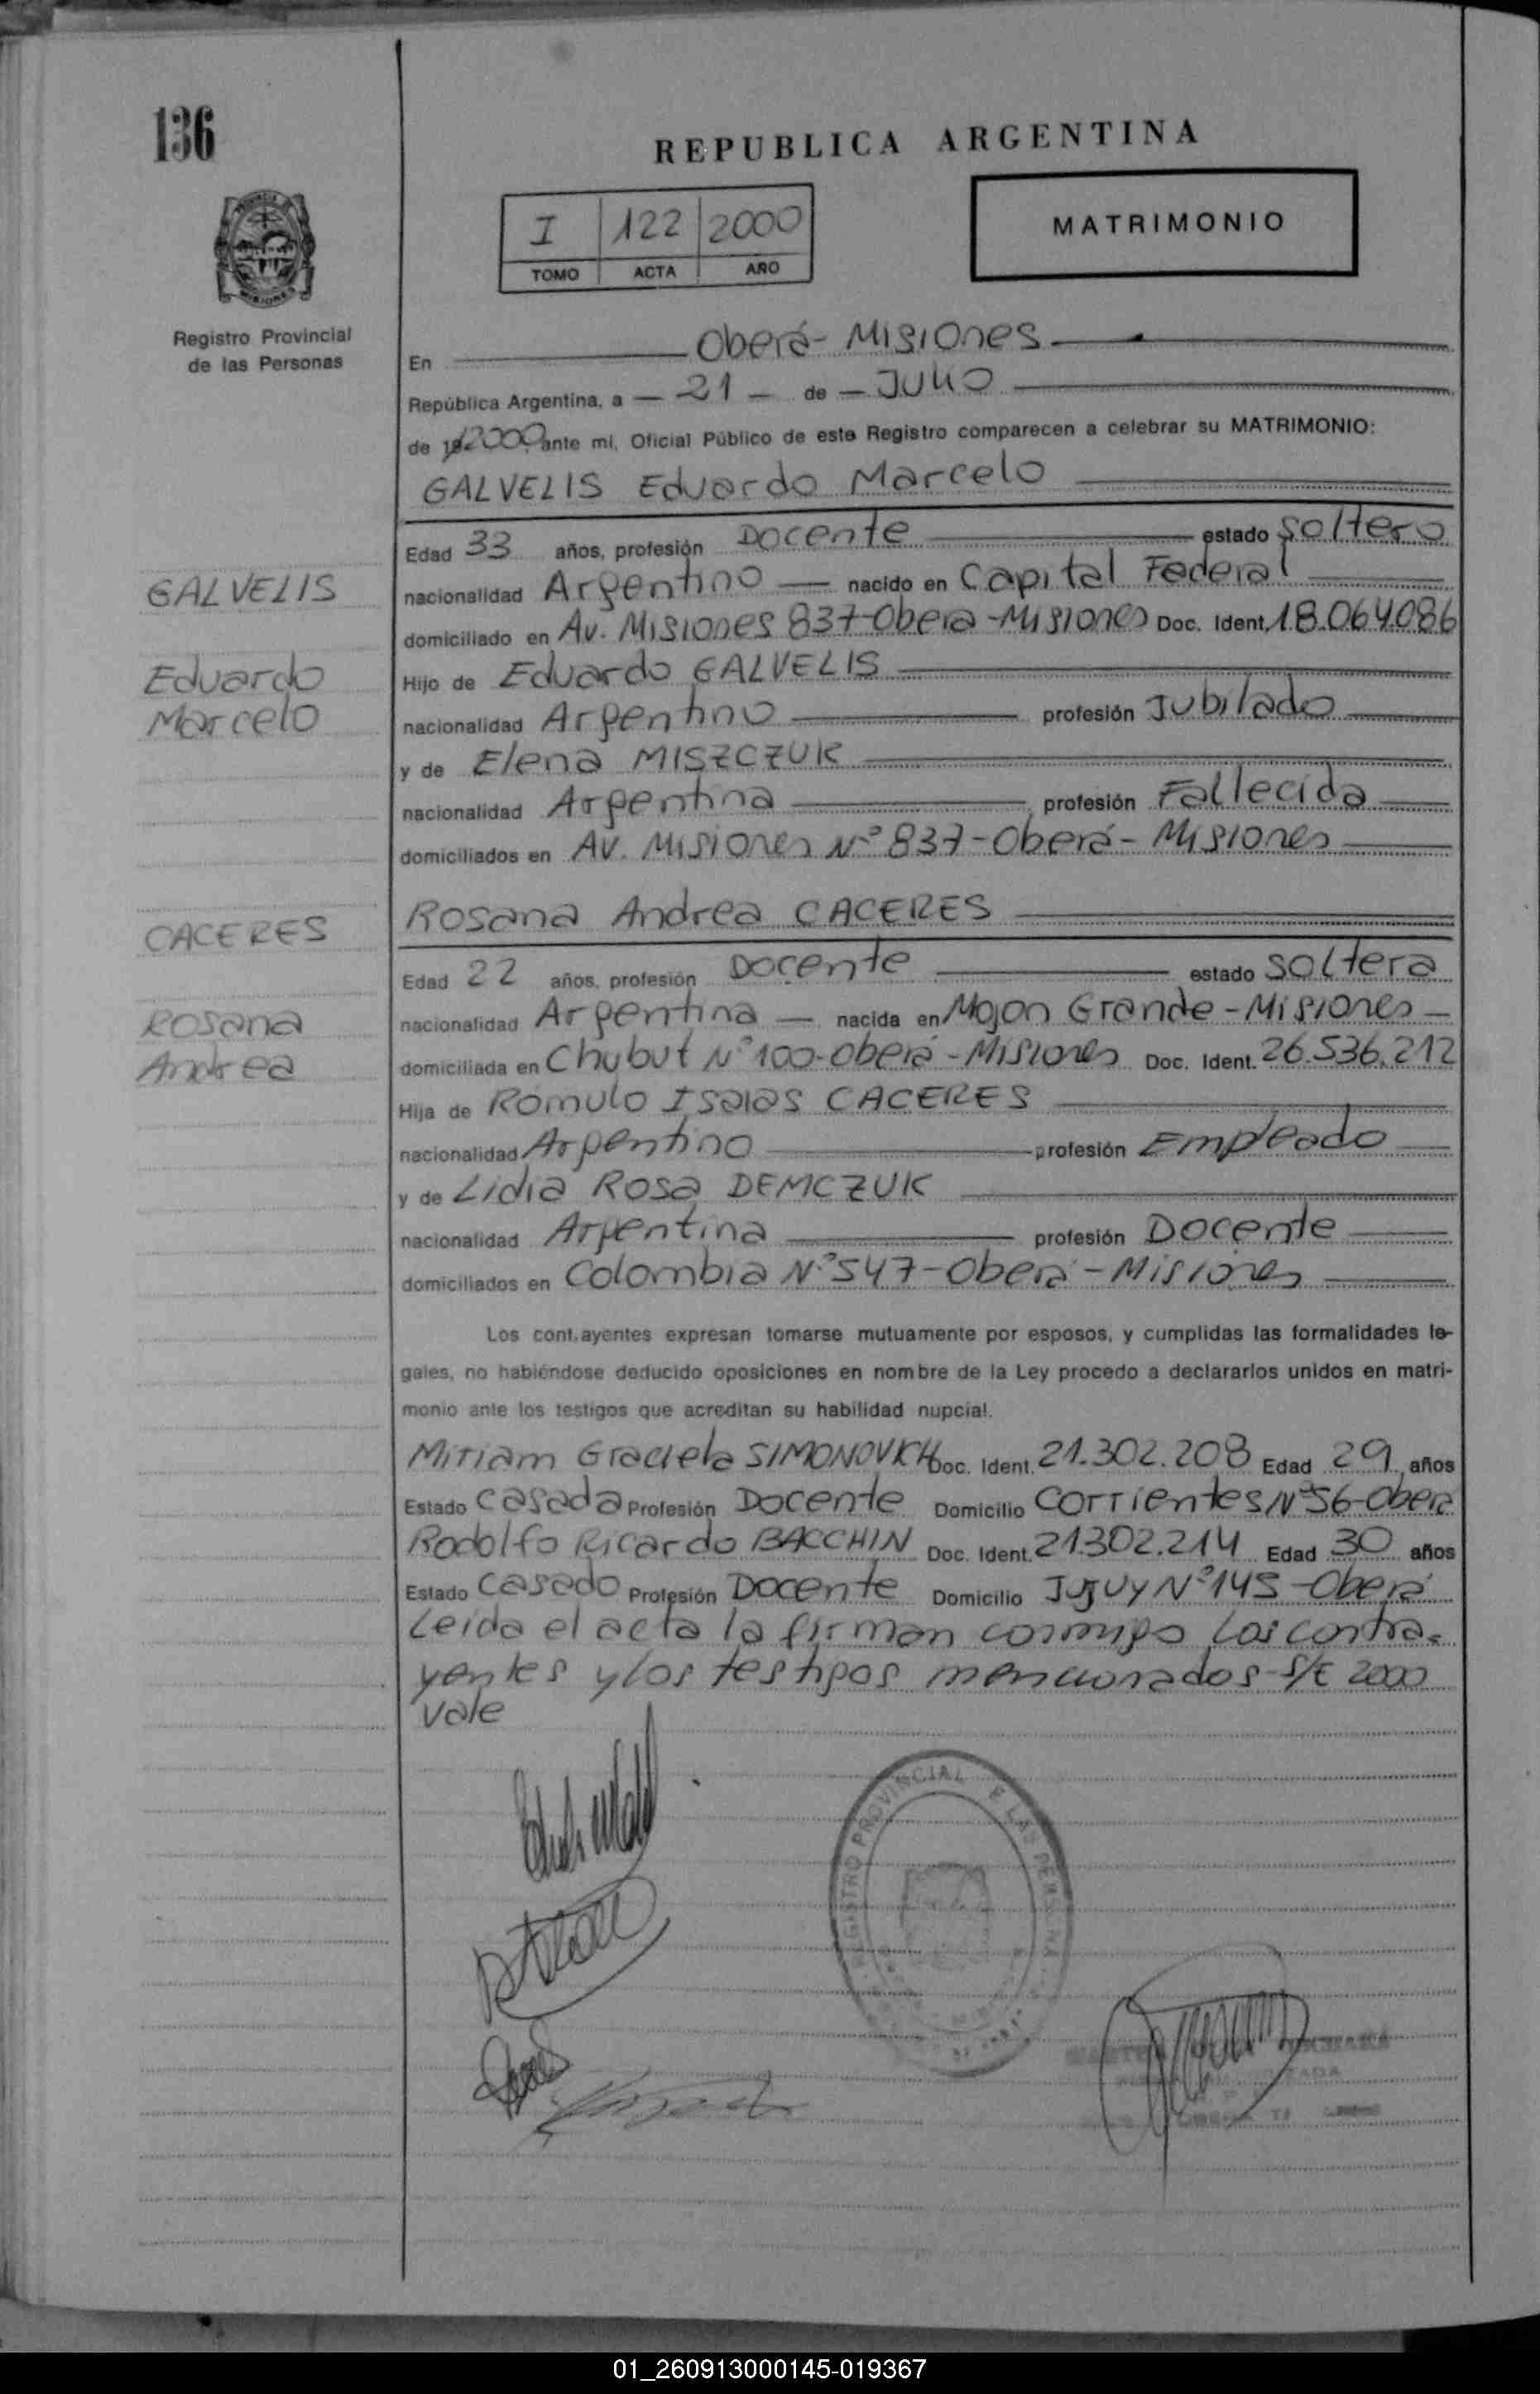 136
REPUBLICA ARGENTINA
I 122 2000
TOMO ACTA AÑO
MATRIMONIO
Registro Provincial
de las Personas
En Oberá - Misiones
República Argentina, a 21 de Julio
de 192000 ante mí, Oficial Público de este Registro comparecen a celebrar su MATRIMONIO:
GALVELIS Eduardo Marcelo
Edad 33 años, profesión Docente estado soltero
GALVELIS
nacionalidad Argentino nacido en Capital Federal
domiciliado en Av. Misiones 837-Oberá-Misiones Doc. Ident. 18.064.086
Eduardo
Hijo de Eduardo GALVELIS
Marcelo
nacionalidad Argentino profesión Jubilado
y de Elena MISZCZUK
nacionalidad Argentina profesión Fallecida
domiciliados en Av. Misiones Nº 837-Oberá-Misiones
CACERES
Rosana Andrea CACERES
Edad 22 años, profesión Docente estado soltera
Rosana
nacionalidad Argentina nacida en Mojon Grande-Misiones
Andrea
domiciliada en Chubut Nº 100-Oberá-Misiones Doc. Ident. 26.536.212
Hija de Romulo Isaias CACERES
nacionalidad Argentino profesión Empleado
y de Lidia Rosa DEMCZUK
nacionalidad Argentina profesión Docente
domiciliados en Colombia Nº 547-Oberá-Misiones
Los contrayentes expresan tomarse mutuamente por esposos, y cumplidas las formalidades le-
gales, no habiéndose deducido oposiciones en nombre de la Ley procedo a declararlos unidos en matri-
monio ante los testigos que acreditan su habilidad nupcial.
Miriam Graciela SIMONOVICH Doc. Ident. 21.302.208 Edad 29 años
Estado Casada Profesión Docente Domicilio Corrientes Nº 56-Oberá
Rodolfo Ricardo BACCHIN Doc. Ident. 21.302.214 Edad 30 años
Estado Casado Profesión Docente Domicilio Jujuy Nº 145-Oberá
Leída el acta la firman conmigo los contra-
yentes y los testigos mencionados-S/E 2000
vale
REGISTRO PROVINCIAL DE LAS PERSONAS
01_260913000145-019367